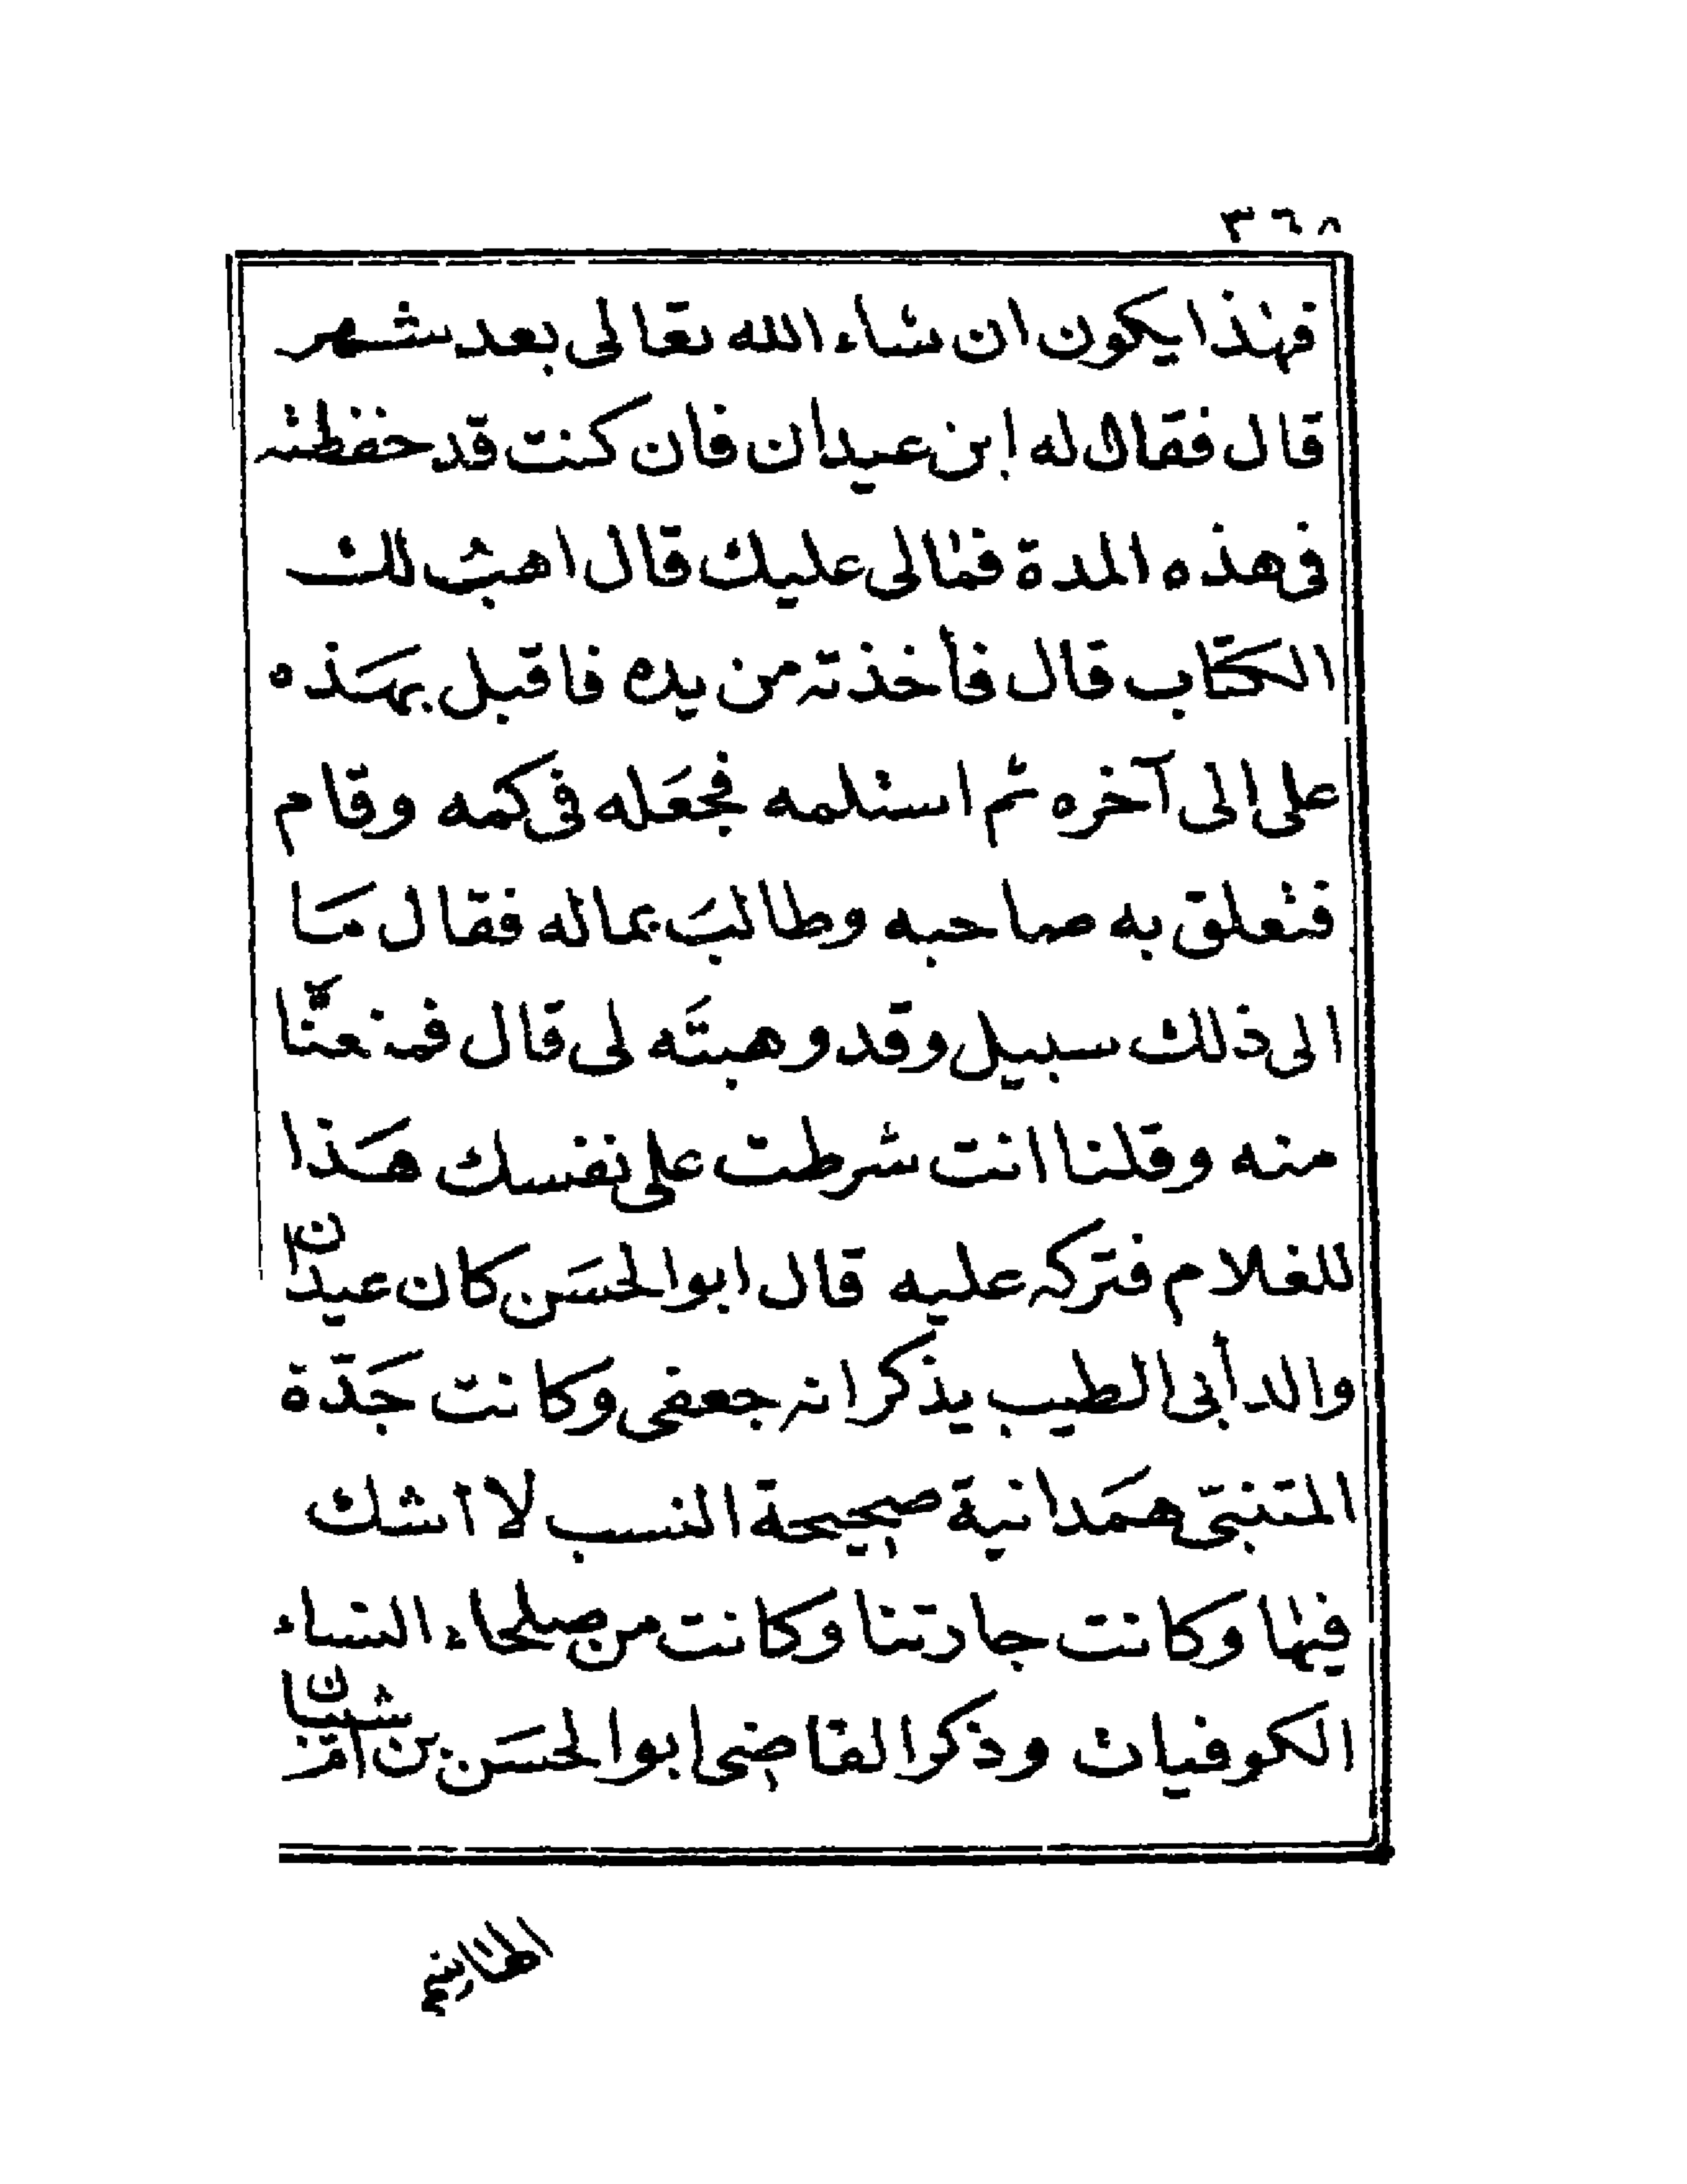 ٣٦٨
فهذا يكون ان شاء الله تعالى بعد شهر
قال فقال له ابن عيدان فان كنت قد حفظته
في هذه المدة فمالى عليك قال اهب لك
الكتاب قال فأخذته من يده فاقبل يهذه
على الى آخره ثم استلمه فجعله فى كمه وقام
فتعلق به صاحبه وطالب بماله فقال ما
الى ذلك سبيل وقد وهبته لى قال فمنعناه
منه وقلنا انت شرطت على نفسك هذا
للغلام فتركه عليه قال ابوالحسن كان عيدان
والد أبى الطيب يذكر انه جعفى وكانت جدة
المتنبى همدانية صحيحة النسب لا اشك
فيها وكانت جارتنا وكانت من صلحاء النساء
الكوفيات وذكر القاضى ابوالحسن بن ام شيبان